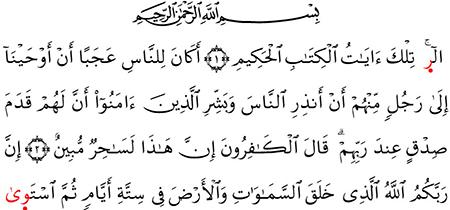 بِسْمِ اللَّهِ الرَّحْمَٰنِ الرَّحِيمِ
الٓرۚ تِلْكَ ءَايَٰتُ الْكِتَٰبِ الْحَكِيمِ ﴿١﴾ أَكَانَ لِلنَّاسِ عَجَبًا أَنْ أَوْحَيْنَآ
إِلَىٰ رَجُلٍ مِّنْهُمْ أَنْ أَنذِرِ النَّاسَ وَبَشِّرِ الَّذِينَ ءَامَنُوٓا۟ أَنَّ لَهُمْ قَدَمَ
صِدْقٍ عِندَ رَبِّهِمْۗ قَالَ الْكَٰفِرُونَ إِنَّ هَٰذَا لَسَٰحِرٌ مُّبِينٌ ﴿٢﴾ إِنَّ
رَبَّكُمُ اللَّهُ الَّذِى خَلَقَ السَّمَٰوَٰتِ وَالْأَرْضَ فِى سِتَّةِ أَيَّامٍ ثُمَّ اسْتَوَىٰ